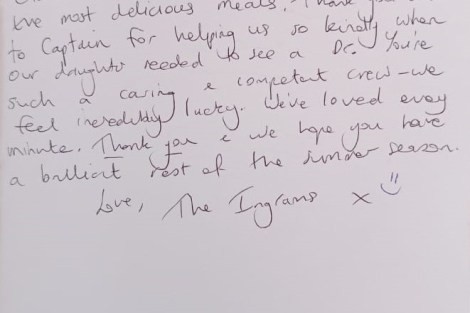 the most delicious meals. Thank you
to Captain for helping us so kindly when
our daughter needed to see a Dr. You're
such a caring & competent crew - we
feel incredibly lucky. We've loved every
minute. Thank you & we hope you have
a brilliant rest of the summer season.
Love, The Ingrams x